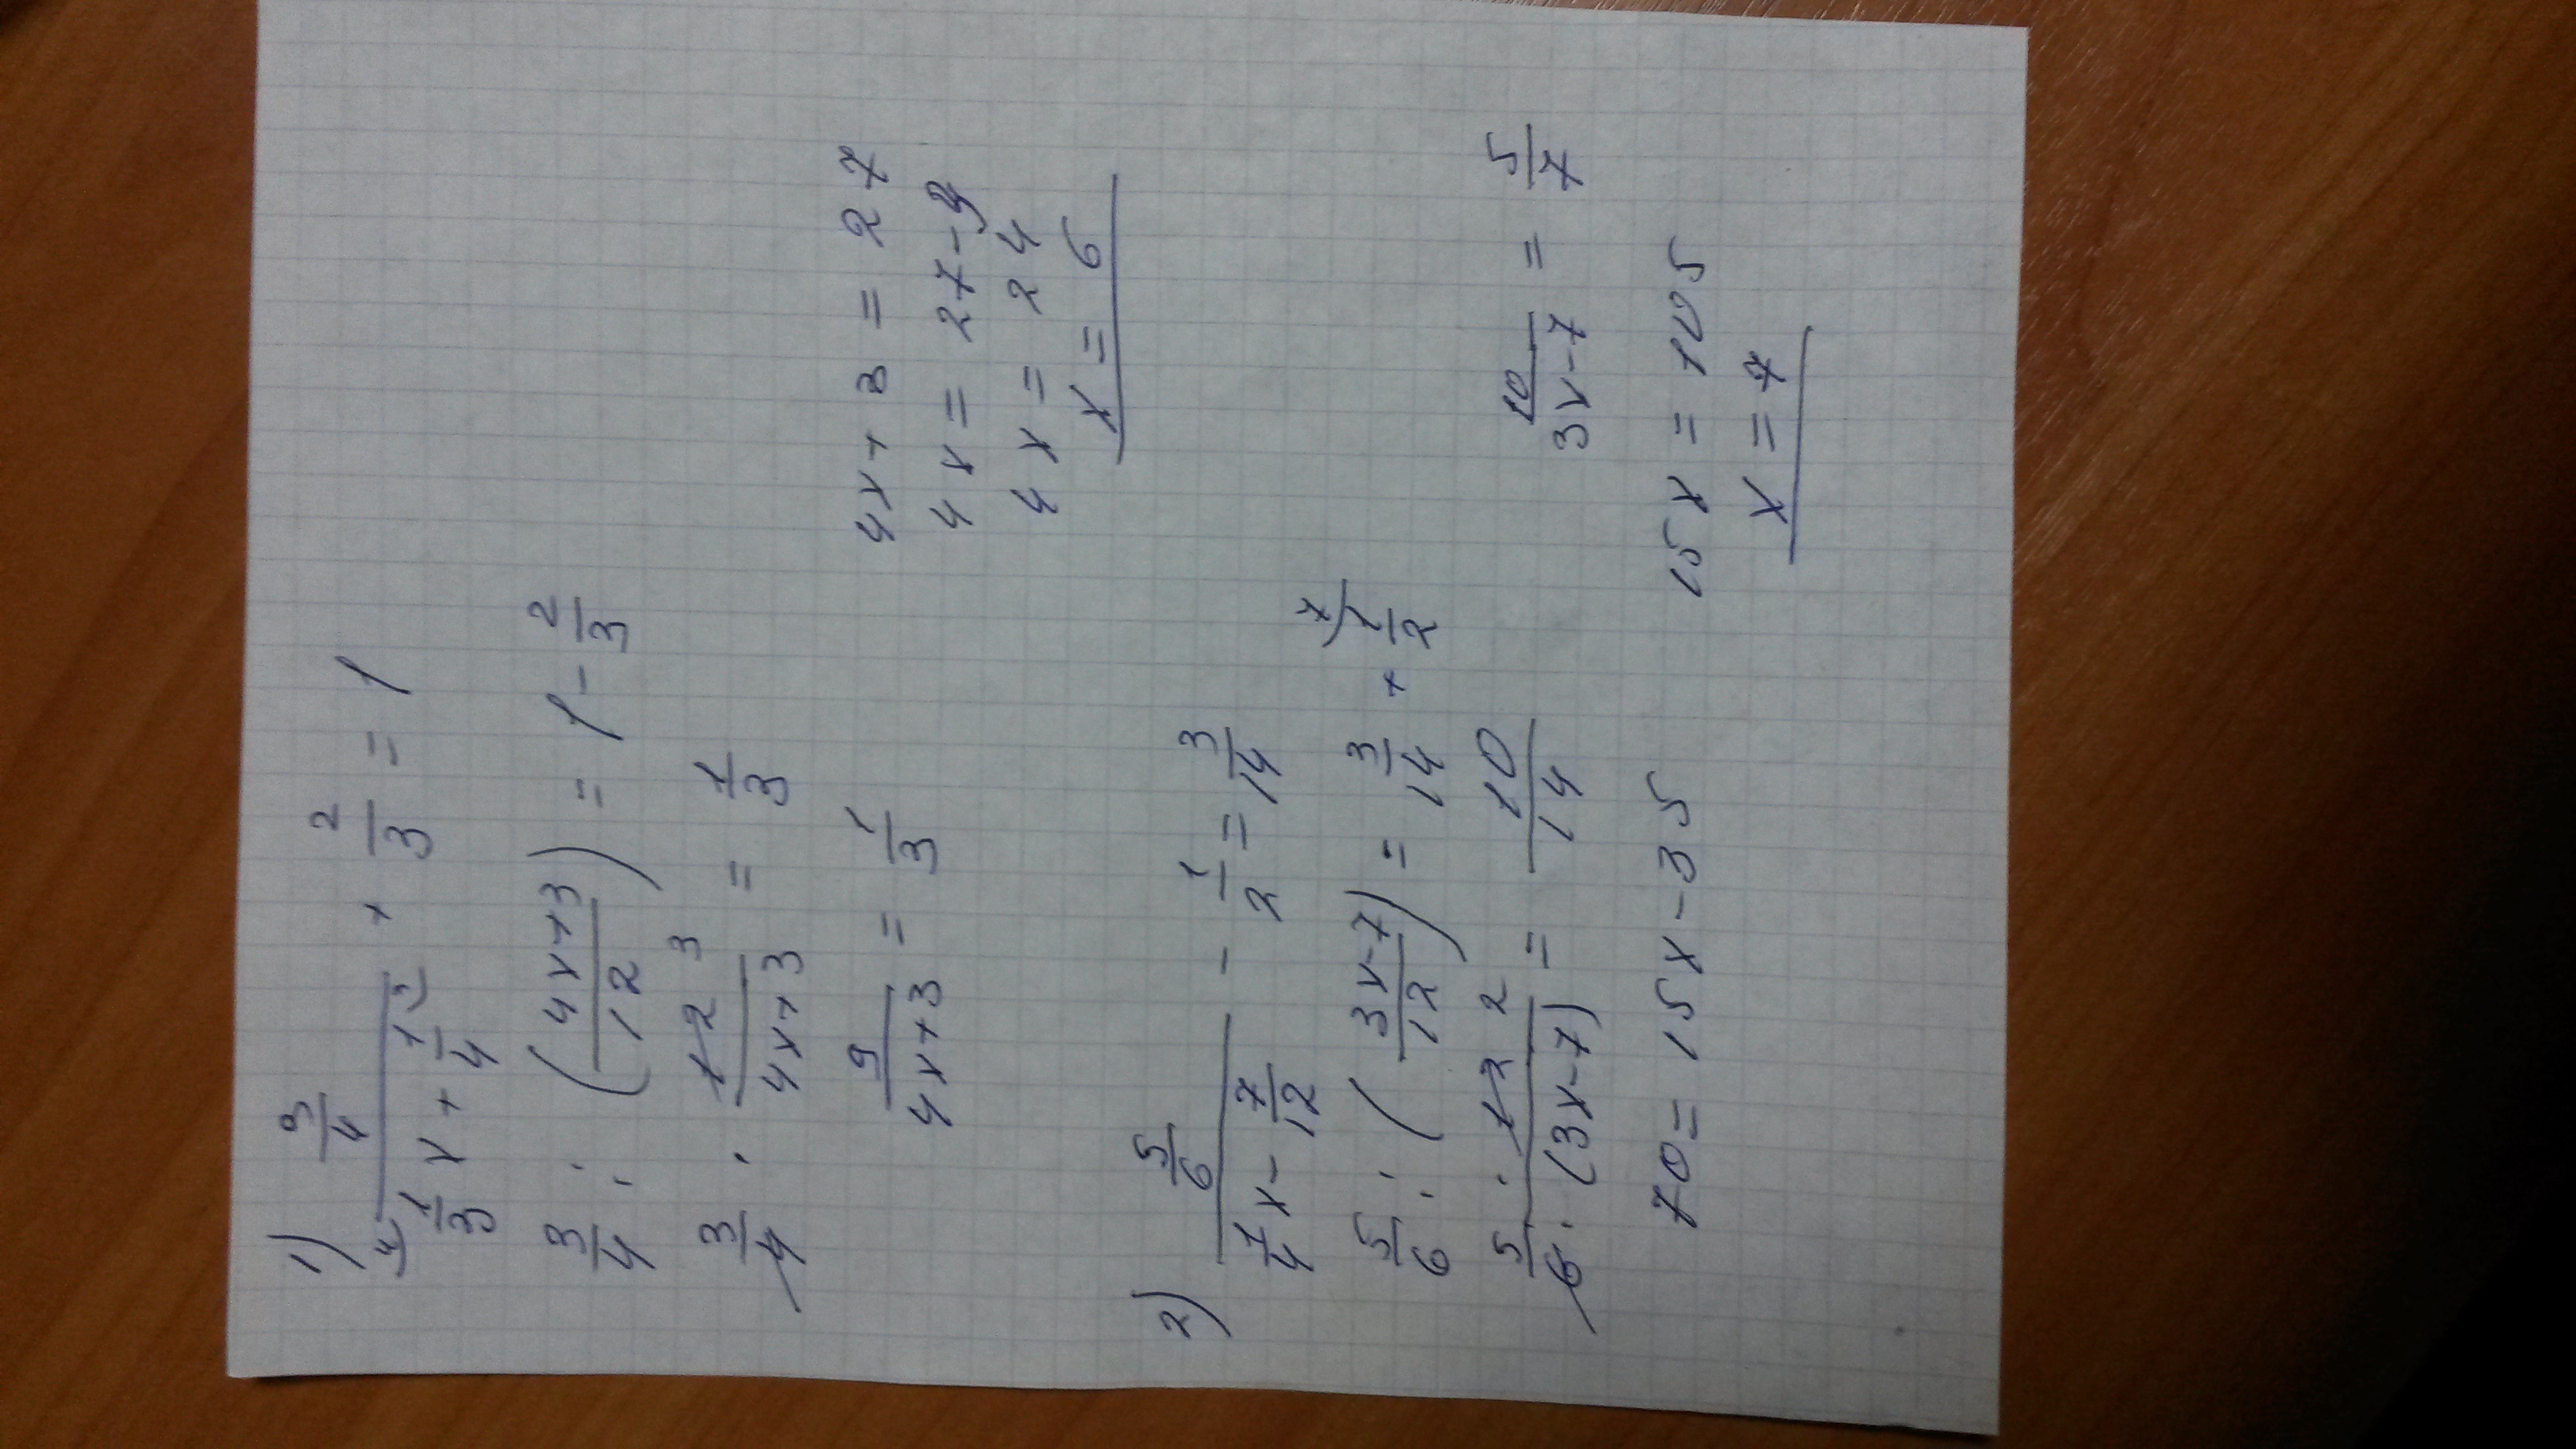 1) 3/4
4) 1/3 x + 1/4 + 2/3 = 1
3/4 : ( 4x+3 / 12 ) = 1 - 2/3
3/4 · 12 3 / 4x+3 = 1/3
9 / 4x+3 = 1/3
4x + 3 = 27
4x = 27-3
4x = 24
x = 6
2) 5/6 / x - 7/12 - 1/2 = 3/14
5/6 : ( 3x-7 / 12 ) = 3/14 + 7) 1/2
5 · 12 2 / 6 · (3x-7) = 10/14
10 / 3x-7 = 5/7
70 = 15x - 35
15x = 105
x = 7